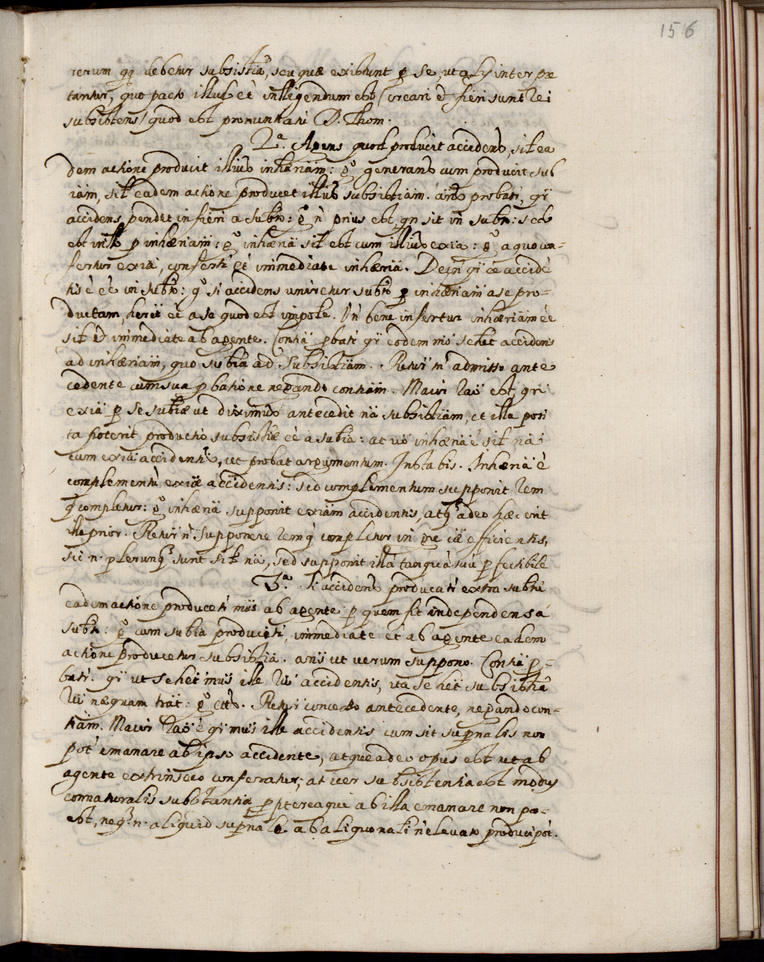 156
rerum qq debetur subsistia, seu quæ existunt p se, ut alij interpre
tantur, quo pacto illud ee intligendum est (creari et fieri sunt rei
subsistens) quod est pronuntiati D. Thom.
2ª. Agens quod producit accidens, sit ea
dem actione producit illius inhæriam: gº generans cum producit sub
tiam, sit eadem actione producet illius subsistiam. ans probati qi
accidens pendet in fieri a subto: gº n prius est qn sit in subto: sed
est in to p inhæriam: gº inhæria sit est cum illius exia: gº a quo con-
fertur exia, conferti et immediate inhæria. Dein qi ee accidē
tis ē ee in subto: gº si accidens uniretur subto p inhæriam a se pro-
ductam, heret ee a se quod est impole. Un bene infertur inhæriam ee
sit et immediate ab agente. Contia pbati qi eodem mo se het accidens
ad inhæriam, quo substia ad subsistiam. Retur n admisso ante
cedente cum sua pbatione negando contiam. Maior rao est, qi
exia p se substiæ ut diximus antecedit na subsistiam, et illa posi
ta poterit productio subsistiæ ee a substia: at uo inhæria ē sit na
cum exia accidentis, ut probat argumentum. Instabis. Inhæria ē
complementū exiæ accidentis: sed complementum supponit rem
q completur: gº inhæria supponit exiam accidentis, atq adeo hæc erit
illa prior. Retur n supponere rem q completur in gne cæ efficientis,
sic n. plerunq sunt sit na, sed supponit illa tanquā suū pfectibile
3ª. Si accidens producati extra subtū
eadem actione producati mus ab agente p quem fit independens a
subto: gº cum substia producati, immediate et ab agente eadem
actione producetur subsistia. ans ut uerum suppono. Contia p-
bati. qi ut se het mus ille rū accidentis, ita se het subsistia
rū næquam trat: gº etc. Retur concesso antecedente, negando con-
tiam. Maior rao ē qi mus ille accidentis cum sit supnalis non
pot emanare ab ipso accidente, atque adeo opus est ut ab
agente extrinseco conferatur; at uer subsistentia est modus
connaturalis substantia pptereaque ab illa emanare non po-
est, neq n. aliquid supnale ab aliquo nali n eleuato produci pot.